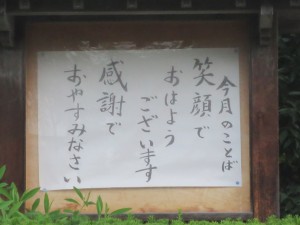 今月のことば
笑顔で
おはよう
ございます
感謝で
おやすみなさい